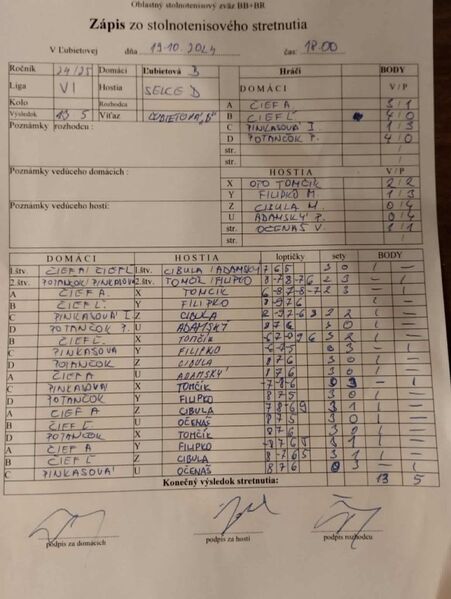 Oblastný stolnotenisový zväz BB+BR
Zápis zo stolnotenisového stretnutia
V Ľubietovej dňa 19.10.2024 čas: 18.00
Ročník 24/25 Domáci Ľubietová B Hráči BODY
Liga VI Hostia SELCE D DOMÁCI V/P
Kolo Rozhodca A CIEF A 3/1
Výsledok 13 5 Víťaz ĽUBIETOVÁ "B" B CIEF Ľ 4/0
Poznámky rozhodcu : C PINKASOVÁ I 1/3
D POTANČOK P. 4/0
str. /
str. /
Poznámky vedúceho domácich : HOSTIA V/P
X OTO TOMČÍK 2/2
Y FILIPKO M 1/3
Poznámky vedúceho hostí: Z CIBULA M. 0/4
U ADAMSKÝ P. 0/4
str. OČENÁŠ V. 1/1
str. /
DOMÁCI HOSTIA loptičky sety BODY
1.štv. CIEF A/ CIEF Ľ 1.štv. CIBULA/ADAMSKÝ 7 6 5 3 0 1 —
2.štv. POTANČOK/PINKASOVÁ 2.štv. TOMČÍK/FILIPKO 2 3 — 1
A CIEF A X TOMČÍK 2 3 — 1
B CIEF Ľ. Y FILIPKO 3 0 1 —
C PINKASOVÁ I Z CIBULA 3 2 1 —
D POTANČOK P. U ADAMSKÝ 8 7 6 3 0 1 —
B CIEF Ľ. X TOMČÍK 3 2 1 —
C PINKASOVÁ Y FILIPKO 0 3 — 1
D POTANČOK Z CIBULA 8 7 6 3 0 1 —
A CIEF A U ADAMSKÝ 8 7 6 3 0 1 —
C PINKASOVÁ X TOMČÍK 0 3 — 1
D POTANČOK Y FILIPKO 8 7 5 3 0 1 —
A CIEF A Z CIBULA 3 1 1 —
B CIEF Ľ U OČENÁŠ 8 7 5 3 0 1 —
D POTANČOK X TOMČÍK 8 7 6 3 0 1 —
A CIEF A Y FILIPKO 3 1 1 —
B CIEF Ľ Z CIBULA 3 1 1 —
C PINKASOVÁ U OČENÁŠ 8 7 6 0 3 — 1
Konečný výsledok stretnutia: 13 5
podpis za domácich podpis za hostí podpis rozhodcu